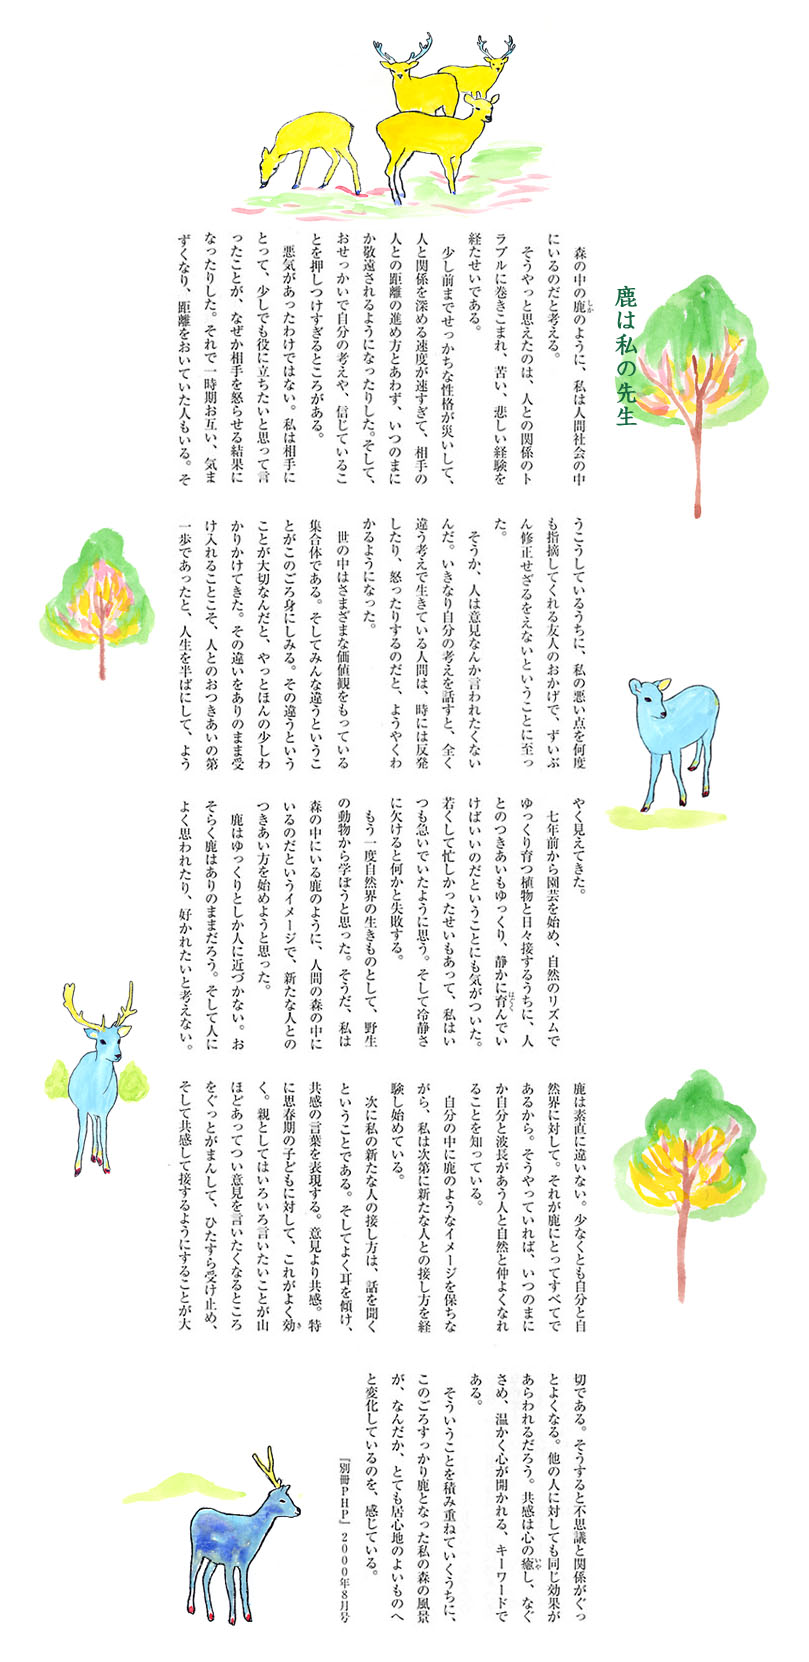 鹿は私の先生
森の中の鹿のように、私は人間社会の中
にいるのだと考える。
そうやっと思えたのは、人との関係のト
ラブルに巻きこまれ、苦い、悲しい経験を
経たせいである。
少し前までせっかちな性格が災いして、
人と関係を深める速度が速すぎて、相手の
人との距離の進め方とあわず、いつのまに
か敬遠されるようになったりした。そして、
おせっかいで自分の考えや、信じているこ
とを押しつけすぎるところがある。
悪気があったわけではない。私は相手に
とって、少しでも役に立ちたいと思って言
ったことが、なぜか相手を怒らせる結果に
なったりした。それで一時期お互い、気ま
ずくなり、距離をおいていた人もいる。そ
うこうしているうちに、私の悪い点を何度
も指摘してくれる友人のおかげで、ずいぶ
ん修正せざるをえないということに至っ
た。
そうか、人は意見なんか言われたくない
んだ。いきなり自分の考えを話すと、全く
違う考えで生きている人間は、時には反発
したり、怒ったりするのだと、ようやくわ
かるようになった。
世の中はさまざまな価値観をもっている
集合体である。そしてみんな違うというこ
とがこのごろ身にしみる。その違うという
ことが大切なんだと、やっとほんの少しわ
かりかけてきた。その違いをありのまま受
け入れることこそ、人とのおつきあいの第
一歩であったと、人生を半ばにして、よう
やく見えてきた。
七年前から園芸を始め、自然のリズムで
ゆっくり育つ植物と日々接するうちに、人
とのつきあいもゆっくり、静かに育んでい
けばいいのだということにも気がついた。
若くして忙しかったせいもあって、私はい
つも急いでいたように思う。そして冷静さ
に欠けると何かと失敗する。
もう一度自然界の生きものとして、野生
の動物から学ぼうと思った。そうだ、私は
森の中にいる鹿のように、人間の森の中に
いるのだというイメージで、新たな人との
つきあい方を始めようと思った。
鹿はゆっくりとしか人に近づかない。お
そらく鹿はありのままだろう。そして人に
よく思われたり、好かれたいと考えない。
鹿は素直に違いない。少なくとも自分と自
然界に対して。それが鹿にとってすべてで
あるから。そうやっていれば、いつのまに
か自分と波長があう人と自然と仲よくなれ
ることを知っている。
自分の中に鹿のようなイメージを保ちな
がら、私は次第に新たな人との接し方を経
験し始めている。
次に私の新たな人の接し方は、話を聞く
ということである。そしてよく耳を傾け、
共感の言葉を表現する。意見より共感。特
に思春期の子どもに対して、これがよく効
く。親としてはいろいろ言いたいことが山
ほどあってつい意見を言いたくなるところ
をぐっとがまんして、ひたすら受け止め、
そして共感して接するようにすることが大
切である。そうすると不思議と関係がぐっ
とよくなる。他の人に対しても同じ効果が
あらわれるだろう。共感は心の癒し、なぐ
さめ、温かく心が開かれる、キーワードで
ある。
そういうことを積み重ねていくうちに、
このごろすっかり鹿となった私の森の風景
が、なんだか、とても居心地のよいものへ
と変化しているのを、感じている。
『別冊PHP』2000年8月号